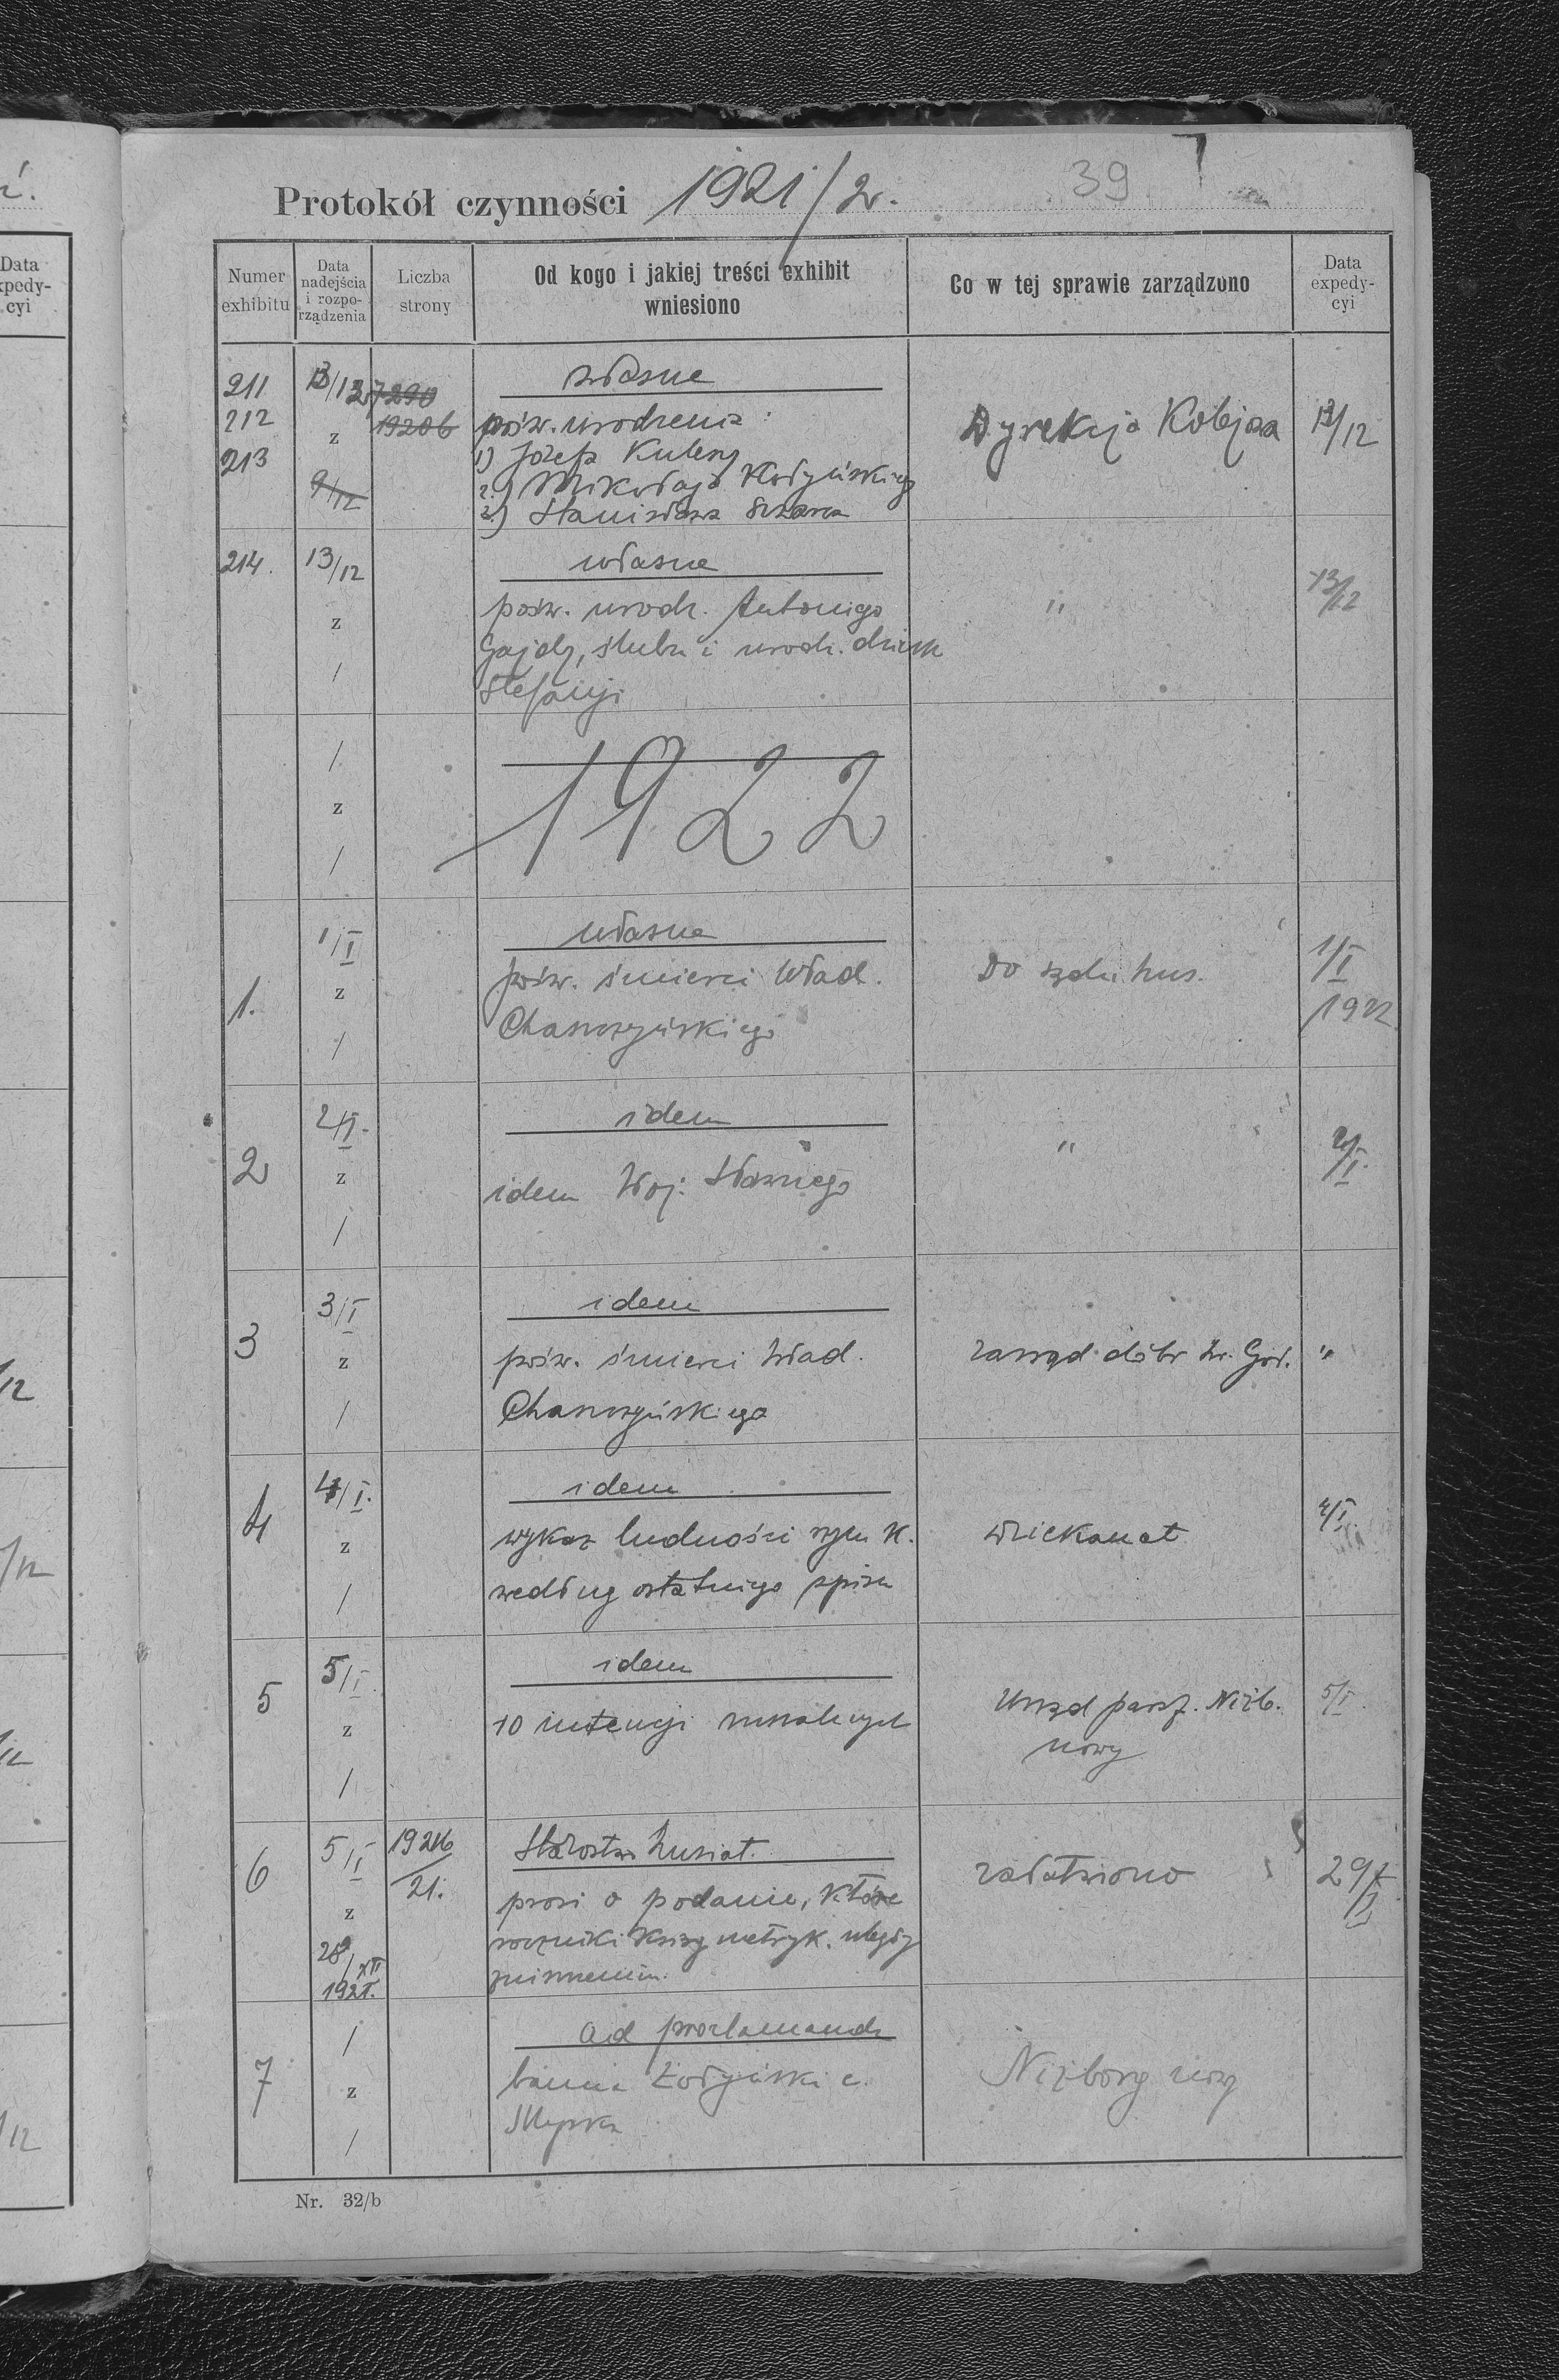 Protokół czynności 1921/2r.
39
Numer exhibitu
Data nadejścia i rozporządzenia
Liczba strony
Od kogo i jakiej treści exhibit wniesiono
Co w tej sprawie zarządzono
Data expedycyi
211
212
213
13/12
z
9/12
7290
19206
własne
pośw. urodzenia:
1) Józefa Kulesy
2.) Mikołaja
3) Stanisława
Dyrekcja Kolejowa
12/12
214.
13/12
z
/
własne
pośw. urodz. Antoniego
Gajdy, ślubu i urodz. dziecka
Stefanji
"
13/12
/
z
/
1922
1.
1/I
z
/
własne
pośw. śmierci Wład.
Charuszyńskiego
Do sądu hus.
1/I
1922
2
2/I.
z
/
idem
idem Woj. Sławnego
"
2/I.
3
3/I
z
/
idem
pośw. śmierci Wład.
Charuszyńskiego
zarząd dóbr
"
4
4/I.
z
/
idem
wykaz ludności rzym K.
według ostatniego spisu
Dziekanat
4/I.
5
5/I.
z
/
idem
10 intencji mszalnych
Urząd paraf. Niżb.
nowy
5/I.
6
5/I
z
28/XII
1921.
19216
21.
Starostwo husiat.
prosi o podanie, które
roczniki ksiąg metryk. uległy
zniszczeniu.
załatwiono
29/I
7
/
z
/
Ad proclamanda
banna
Niżborg nowy
Nr. 32/b
Data expedycyi